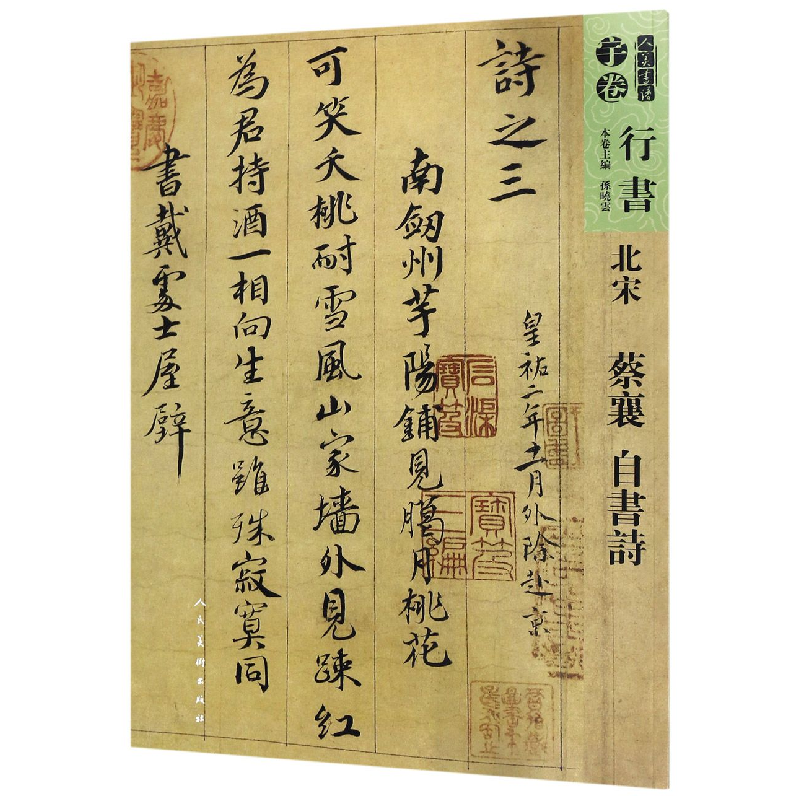 人美書譜
宇卷
行書
本卷主編 孫曉雲
北宋 蔡襄 自書詩
詩之三
皇祐二年十一月外除赴京
南劔州芋陽鋪見臈月桃花
可笑夭桃耐雪風山家墻外見踈紅
為君持酒一相向生意雖殊寂寞同
書戴處士屋壁
石渠寶笈
寶笈三編
人民美術出版社